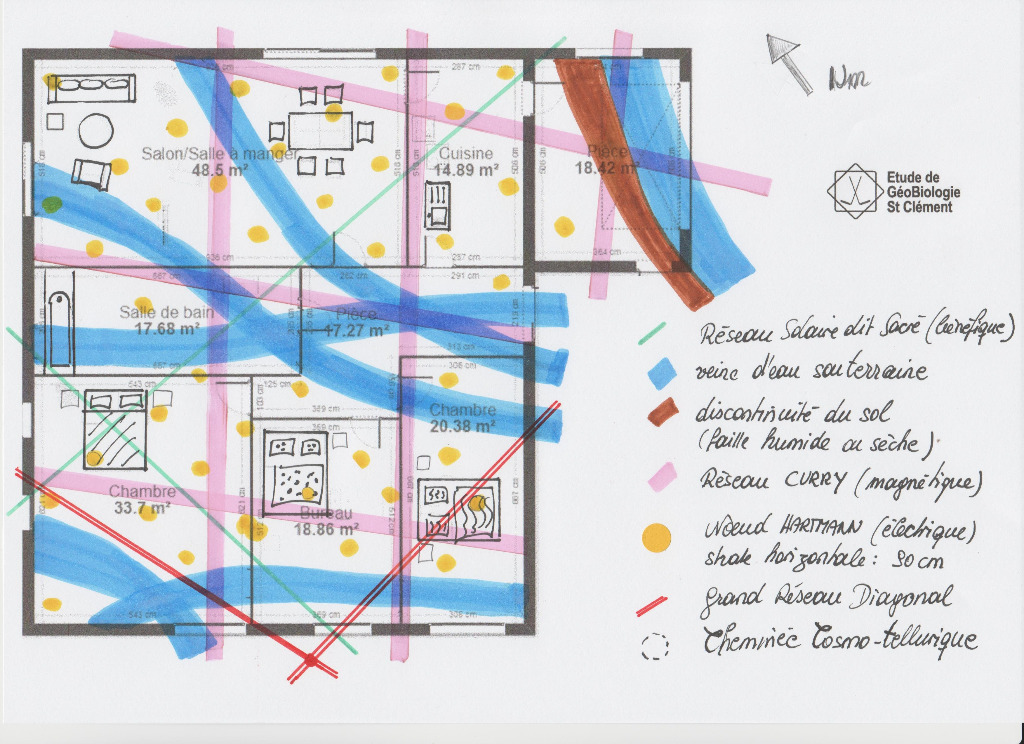 Nm
287 cm
Salon/Salle à manger
48.5 m²
Cuisine
14.89 m²
Pièce
18.42 m²
Etude de
GéoBiologie
St Clément
364 cm
287 cm
291 cm
Salle de bain
17.68 m²
Pièce
17.27 m²
313 cm
306 cm
543 cm
125 cm
369 cm
Chambre
20.38 m²
Chambre
33.7 m²
Bureau
18.86 m²
543 cm
369 cm
308 cm
Réseau Solaire dit Sacré (bénéfique)
veine d'eau souterraine
discontinuité du sol
(faille humide ou sèche)
Réseau CURRY (magnétique)
Nœud HARTMANN (électrique)
horizontale : 90 cm
Grand Réseau Diagonal
Cheminée Cosmo-tellurique